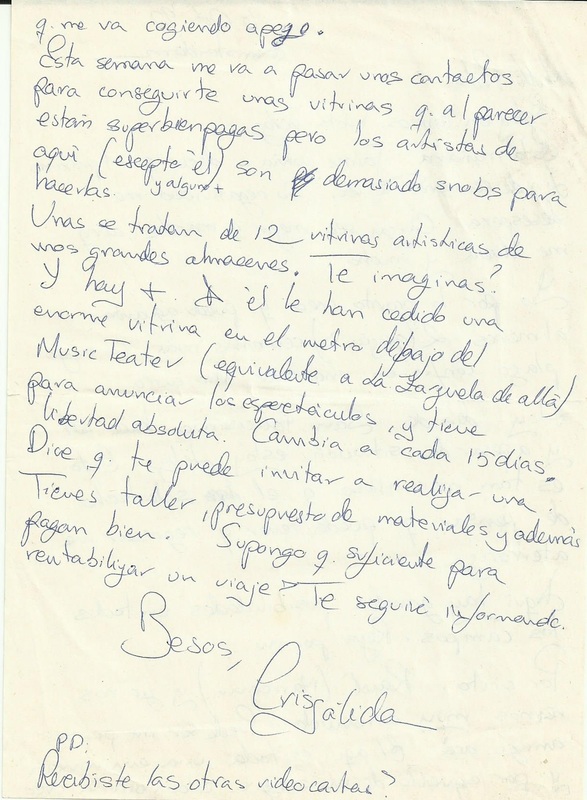 q. me va cogiendo apego.
Esta semana me va a pasar unos contactos
para conseguirte unas vitrinas q. al parecer
están superbienpagas pero los artistas de
aquí (escepto él) son demasiado snobs para
hacerlas. y alguno +
Unas se tratan de 12 vitrinas artísticas de
unos grandes almacenes. Te imaginas?
Y hay +. A él le han cedido una
enorme vitrina en el metro debajo del
Music Teater (equivalente a La Zarzuela de allá)
para anunciar los espectáculos, y tiene
libertad absoluta. Cambia a cada 15 días
Dice q. te puede invitar a realizar una.
Tienes taller, presupuesto de materiales y además
pagan bien. Supongo q. suficiente para
rentabilizar un viaje. Te seguiré informando.
Besos,
Crisálida
PD:
Recibiste las otras videocartas?